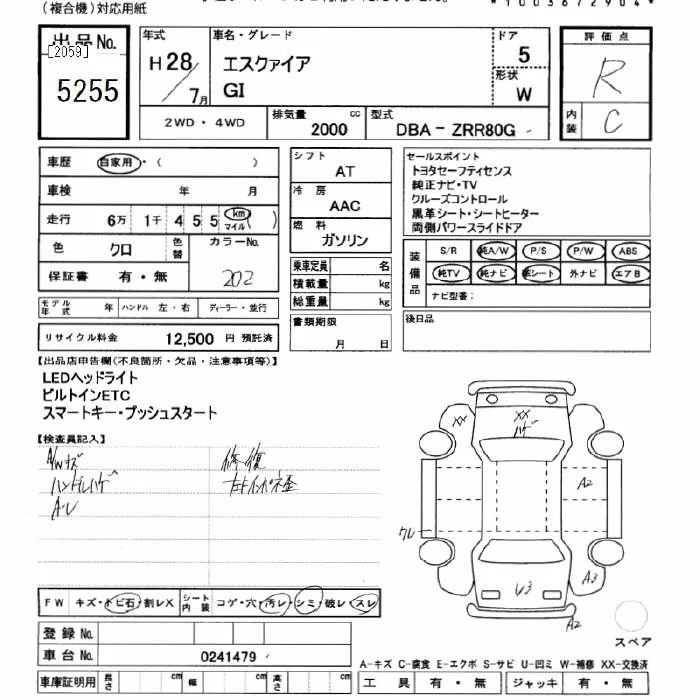 (複合機)対応用紙
*1003672904*
出品No.
[2059]
5255
年式
H28/7月
車名・グレード
エスクァイア
GI
ドア
5
形状
W
評価点
R
内装
C
2WD・4WD
排気量
2000 cc
型式
DBA－ZRR80G
車歴 自家用・( )
車検 年 月
走行 6万 1千 4 5 5 km マイル ( )
色 クロ 色替 カラーNo.
202
保証書 有・無
シフト
AT
冷房
AAC
燃料
ガソリン
乗車定員 名
積載量 kg
総重量 kg
セールスポイント
トヨタセーフティセンス
純正ナビ・TV
クルーズコントロール
黒革シート・シートヒーター
両側パワースライドドア
装備品
S/R 純A/W P/S P/W ABS
純TV 純ナビ 革シート 外ナビ エアB
ナビ型番:
モデル年式 年 ハンドル 左・右 ディーラー・並行
リサイクル料金 12,500 円 預託済
書類期限
月 日
後日品
【出品店申告欄(不良箇所・欠品・注意事項等)】
LEDヘッドライト
ビルトインETC
スマートキー・プッシュスタート
【検査員記入】
A/Wキズ
ハンドルハゲ
修復
XX
XX
ハゲ
A2
クレ
A3
U3
A2
スペア
FW キズ・トビ石・割レX シート内装 コゲ・穴・汚レ・シミ・破レ・スレ
登録No.
車台No. 0241479
車庫証明用 長さ cm 幅 cm 高さ cm
A-キズ C-腐食 E-エクボ S-サビ U-凹ミ W-補修 XX-交換済
工具 有・無 ジャッキ 有・無